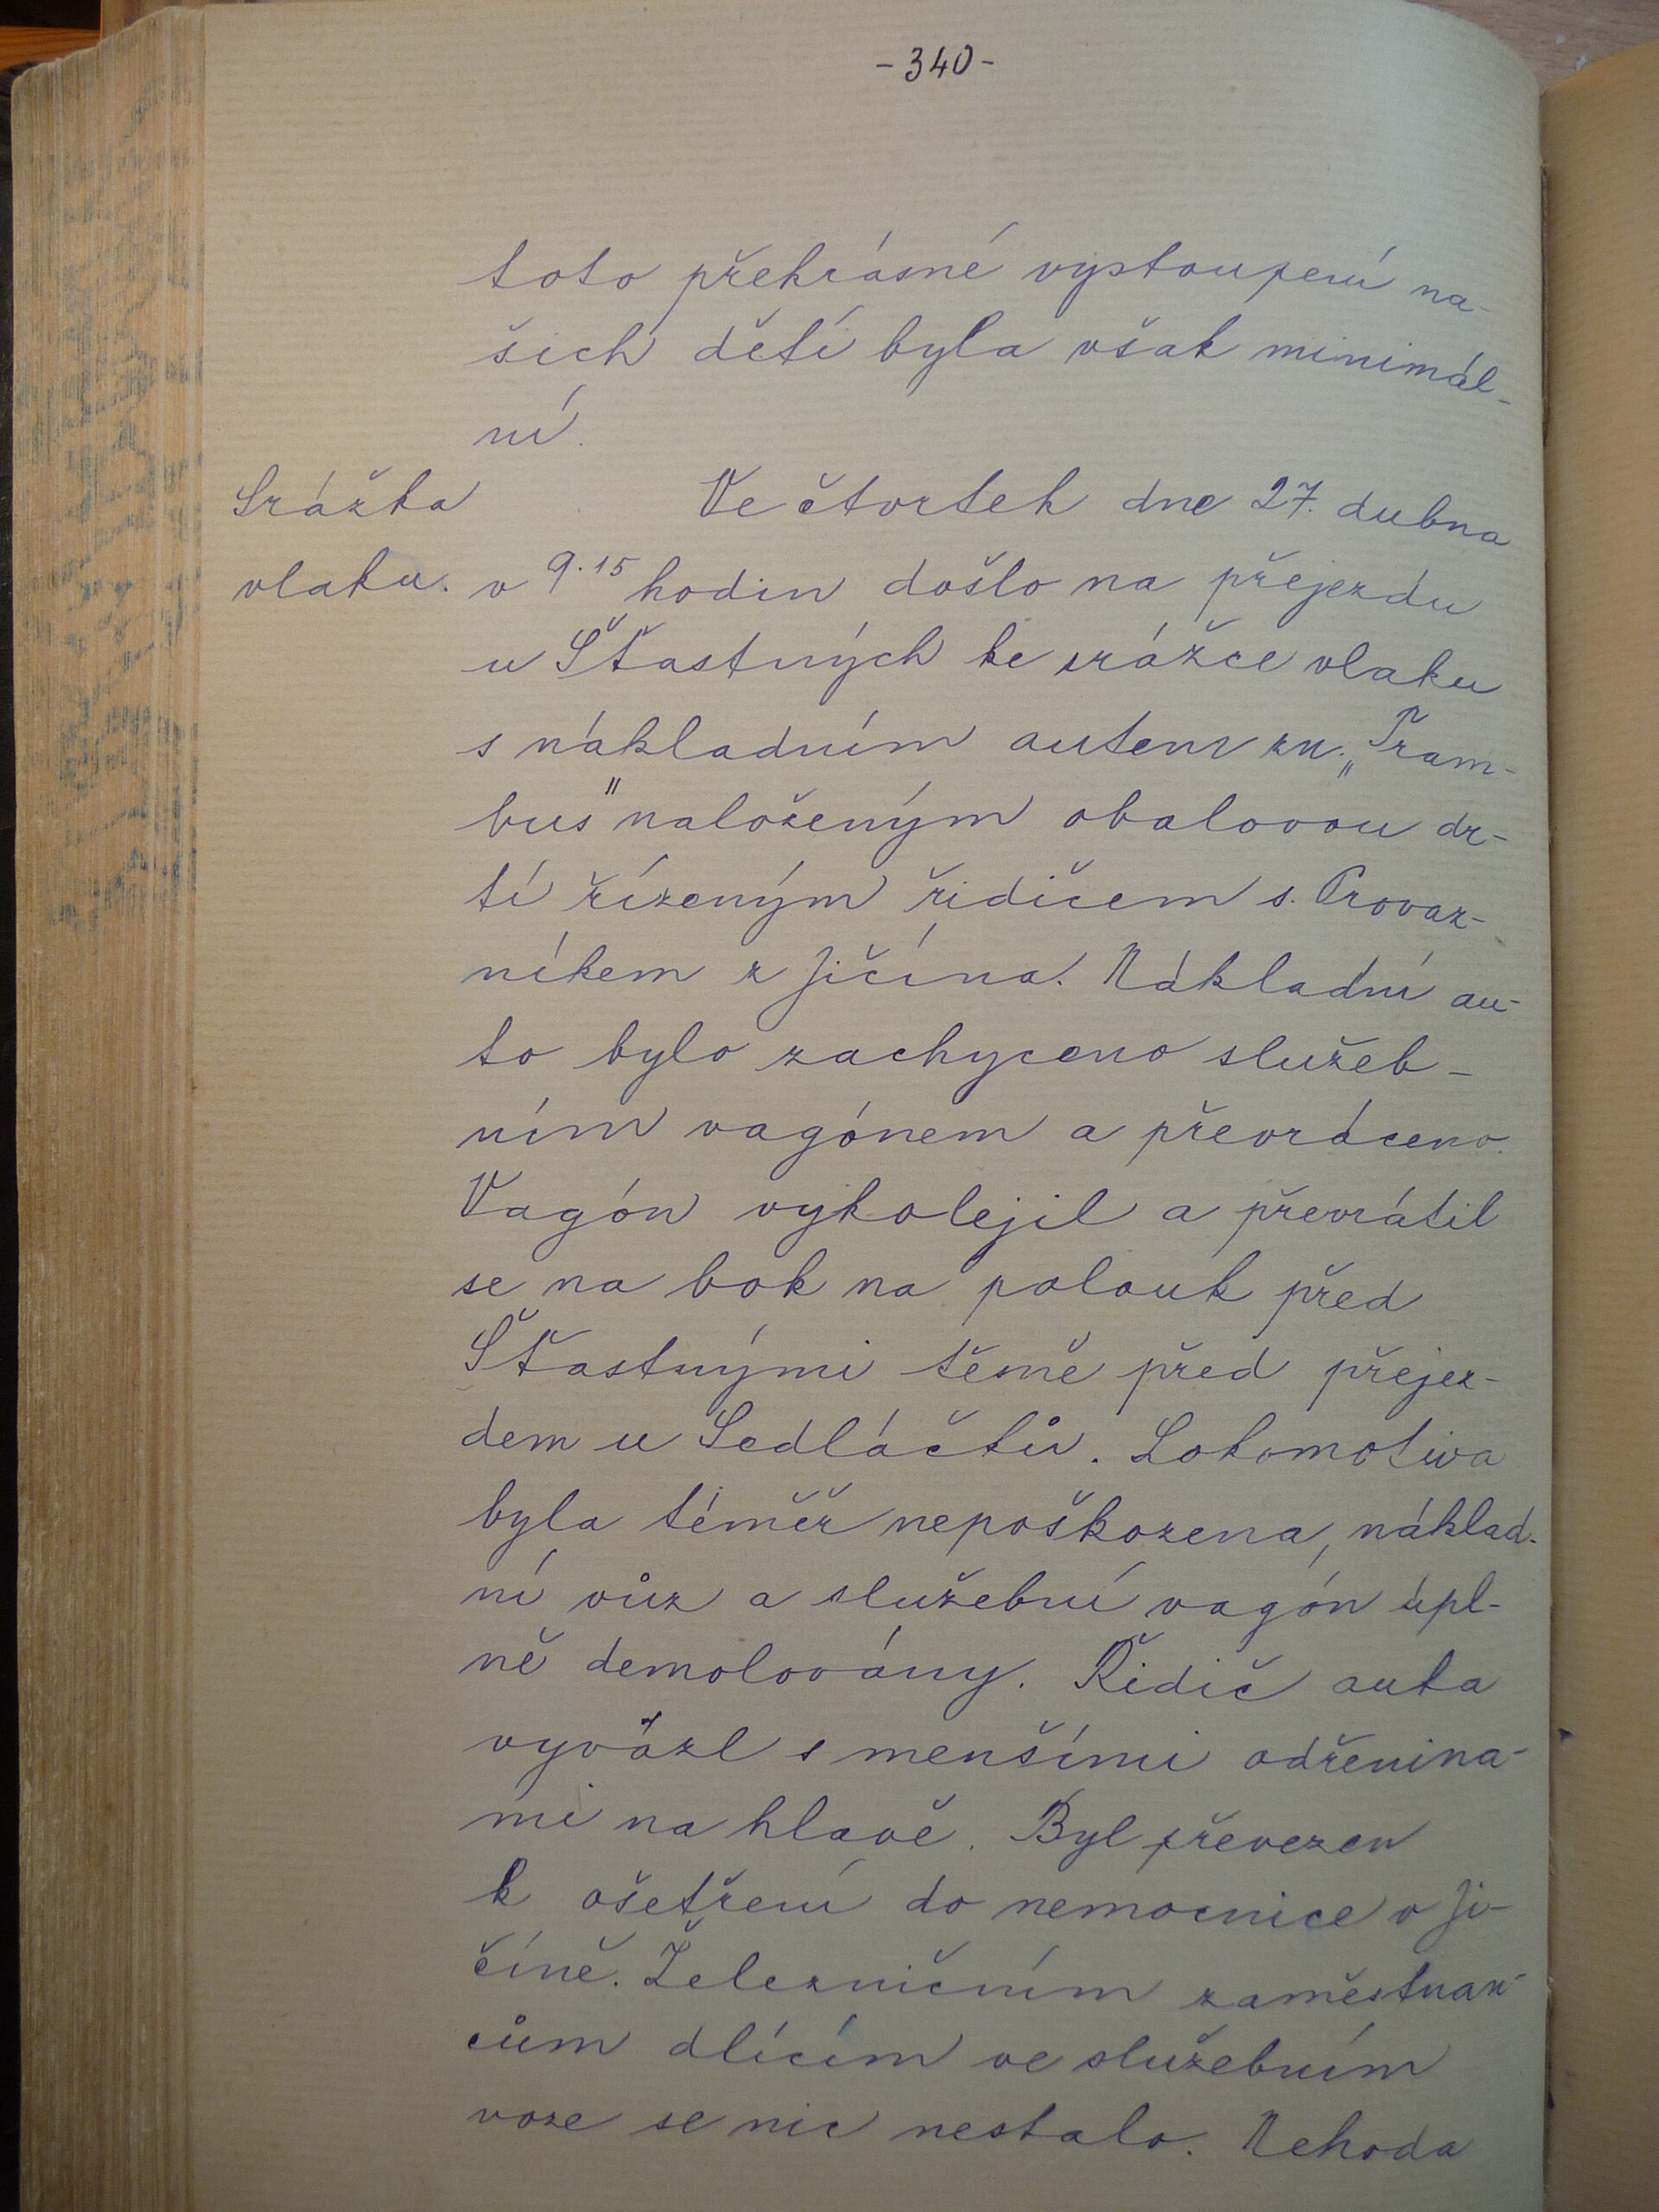 - 340 -
toto překrásné vystoupení na-
šich dětí byla však minimál-
ní.
Srážka
vlaku.
Ve čtvrtek dne 27. dubna
v 9.15 hodin došlo na přejezdu
u Šťastných ke srážce vlaku
s nákladním autem zn. „Tram-
bus" naloženým obalovou dr-
tí řízeným řidičem s. Provaz-
níkem z Jičína. Nákladní au-
to bylo zachyceno služeb-
ním vagónem a převráceno.
Vagón vykolejil a převrátil
se na bok na palouk před
Šťastnými těsně před přejez-
dem u Sedláčků. Lokomotiva
byla téměř nepoškozena, náklad-
ní vůz a služební vagón úpl-
ně demolovány. Řidič auta
vyvázl s menšími odřenina-
mi na hlavě. Byl převezen
k ošetření do nemocnice v Ji-
číně. Železničním zaměstnan-
cům dlícím ve služebním
voze se nic nestalo. Nehoda